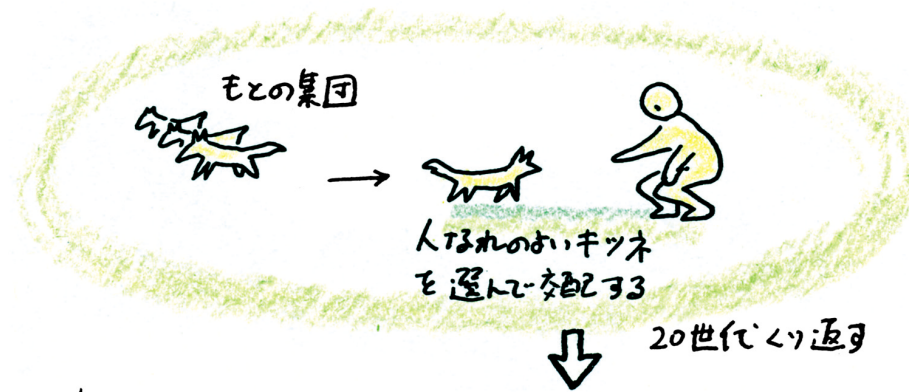 もとの集団
人なれのよいキツネ
を選んで交配する
20世代くり返す